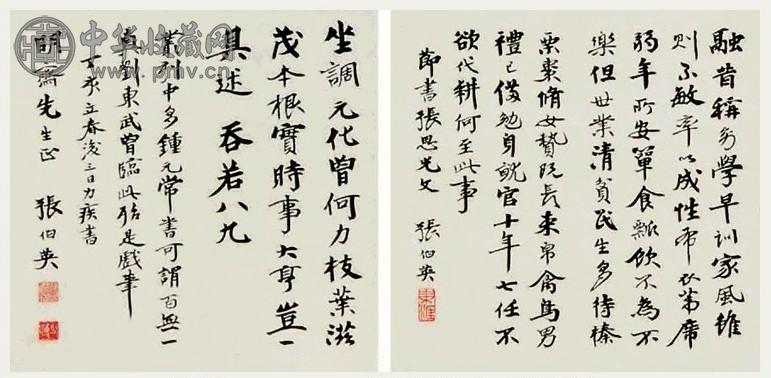 融昔稱幼學早訓家風雖
則不敏率以成性布衣葦席
弱年所安單食瓢飲不為不
樂但世業清貧民生多待榛
栗棗脩女贄既長束帛禽鳥男
禮已備勉身就官十年七任不
欲代耕何至此事
節書張思光文 張伯英
坐調元化曾何力枝葉滋
茂本根實時事大亨豈一
具述 吞若八九
帖中多鍾元常書可謂百無一
真劉東武曾臨此殆是戲事
丁亥立春後三日力疾書
明齋先生正 張伯英
中华收藏网